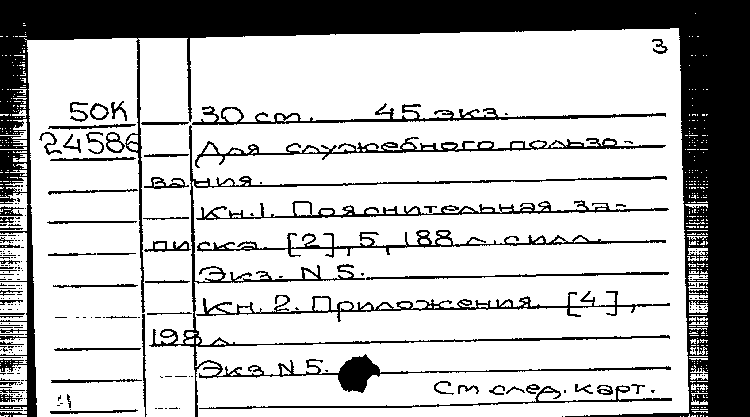 3
50К 30 ст. 45 экз.
24586 Для служебного пользо-
вания.
Кн.1. Пояснительная за-
писка. [2], 5, 188 л. с илл.
Экз. N 5.
Кн. 2. Приложения. [4],
198 л.
Экз. N 5.
См след. карт.